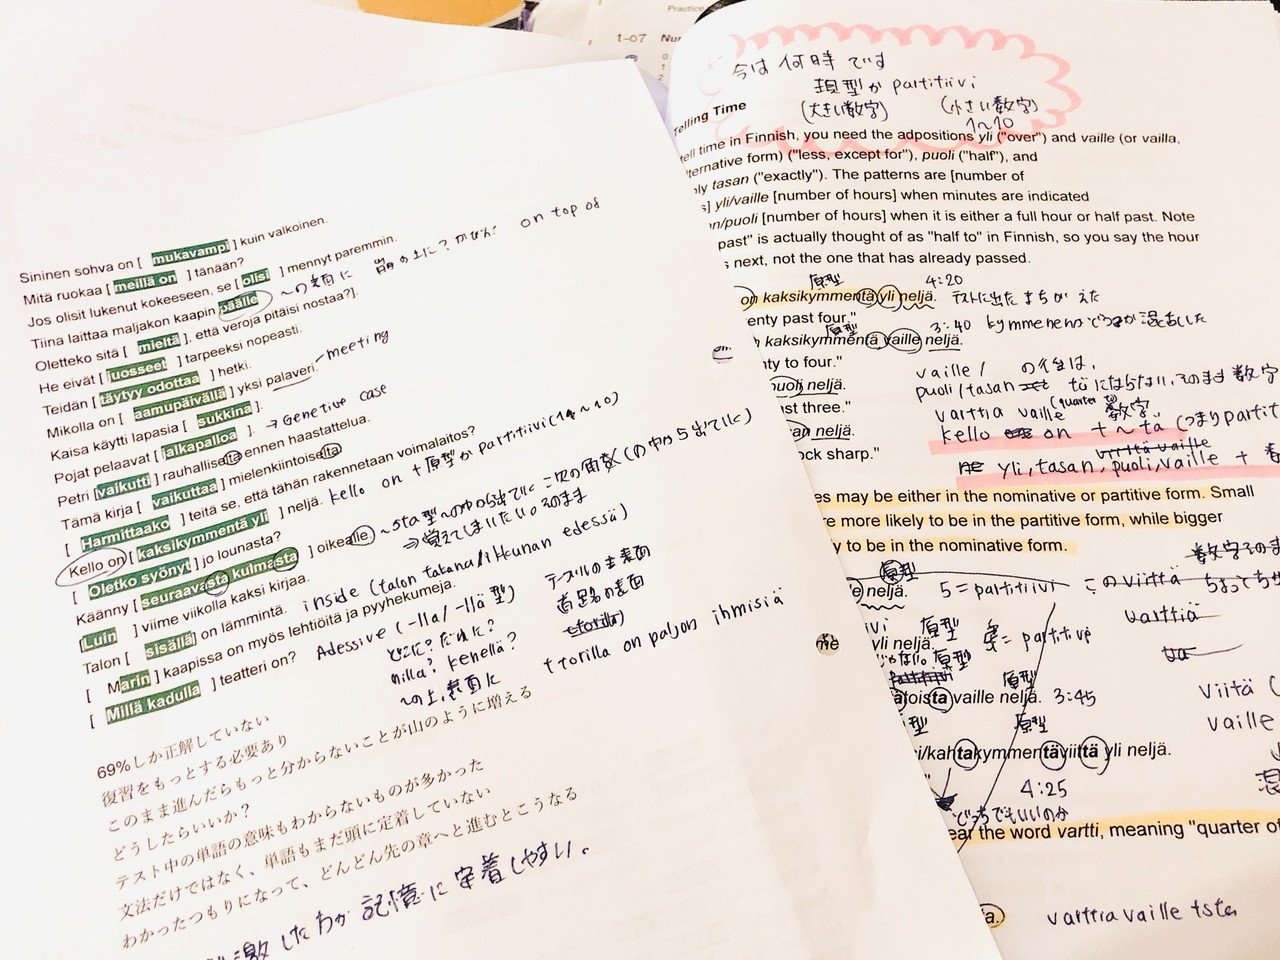 Practice
1-07 Nu
0
1
2
Sininen sohva on [ mukavampi ] kuin valkoinen.
Mitä ruokaa [ meillä on ] tänään?
Jos olisit lukenut kokeeseen, se [ olisi ] mennyt paremmin.
Tiina laittaa maljakon kaapin päälle ~の表面に 品の上に? かなぁ? on top of
Oletteko sitä [ mieltä ], että veroja pitäisi nostaa?].
He eivät [ juosseet ] tarpeeksi nopeasti.
Teidän [ täytyy odottaa ] hetki.
Mikolla on [ aamupäivällä ] yksi palaveri. meeting
Kaisa käytti lapasia [ sukkina ].
Pojat pelaavat [ jalkapalloa ]. → Genetive case
Petri [vaikutti] rauhalliselta ennen haastattelua.
Tämä kirja [ vaikuttaa ] mielenkiintoiselta
[ Harmittaako ] teitä se, että tähän rakennetaan voimalaitos?
Kello on [ kaksikymmentä yli ] neljä. kello on + 原型か partitiivi (1~10)
[ Oletko syönyt ] jo lounasta?
Käänny [ seuraavasta kulmasta ] oikealle ~sta型 ~の中から出ていく 次の角数(の中から出ていく)
⇒覚えてしまいたい。そのまま
[Luin ] viime viikolla kaksi kirjaa.
Talon [ sisällä] on lämmintä. inside (talon takana/ikkunan edessä)
[ Marin ] kaapissa on myös lehtiöitä ja pyyhekumeja.
[ Millä kadulla ] teatteri on? Adessive (-lla/-llä型)
どこに? だれに?
millä? kenellä?
~の上、表面に
テーブルの上表面
道路の表面
torilla on paljon ihmisiä
69%しか正解していない
復習をもっとする必要あり
このまま進んだらもっと分からないことが山のように増える
どうしたらいいか?
テスト中の単語の意味もわからないものが多かった
文法だけではなく、単語もまだ頭に定着していない
わかったつもりになって、どんどん先の章へと進むとこうなる
激したわが記憶に定着しやすい。
今は何時です
現型か partitiivi
(大きい数字) (小さい数字)
1~10
Telling Time
tell time in Finnish, you need the adpositions yli ("over") and vaille (or vailla,
ternative form) ("less, except for"), puoli ("half"), and
ly tasan ("exactly"). The patterns are [number of
s] yli/vaille [number of hours] when minutes are indicated
on/puoli [number of hours] when it is either a full hour or half past. Note
past" is actually thought of as "half to" in Finnish, so you say the hour
s next, not the one that has already passed.
原型 4:20
on kaksikymmentä yli neljä. テストに出た まちがえた
enty past four."
原型 3:40 kymmenen
kaksikymmentä vaille neljä.
nty to four."
puoli neljä.
st three."
an neljä.
ock sharp."
vaille/ の後は、
puoli/tasan täにならない、そのまま数字
varttia vaille (quarter to) 数字
kello on +~tä (つまりpartit
yli, tasan, puoli, vaille +
es may be either in the nominative or partitive form. Small
re more likely to be in the partitive form, while bigger
y to be in the nominative form.
原型
neljä. 5=partitiivi この viittä
varttiä
yli neljä. 原型 = partitive
原型
toista vaille neljä. 3:45
viitä (
vaille
原型
i/kahtakymmentäviittä yli neljä.
4:25
どっちでもいいのか
ear the word vartti, meaning "quarter of
a. varttia vaille tsta